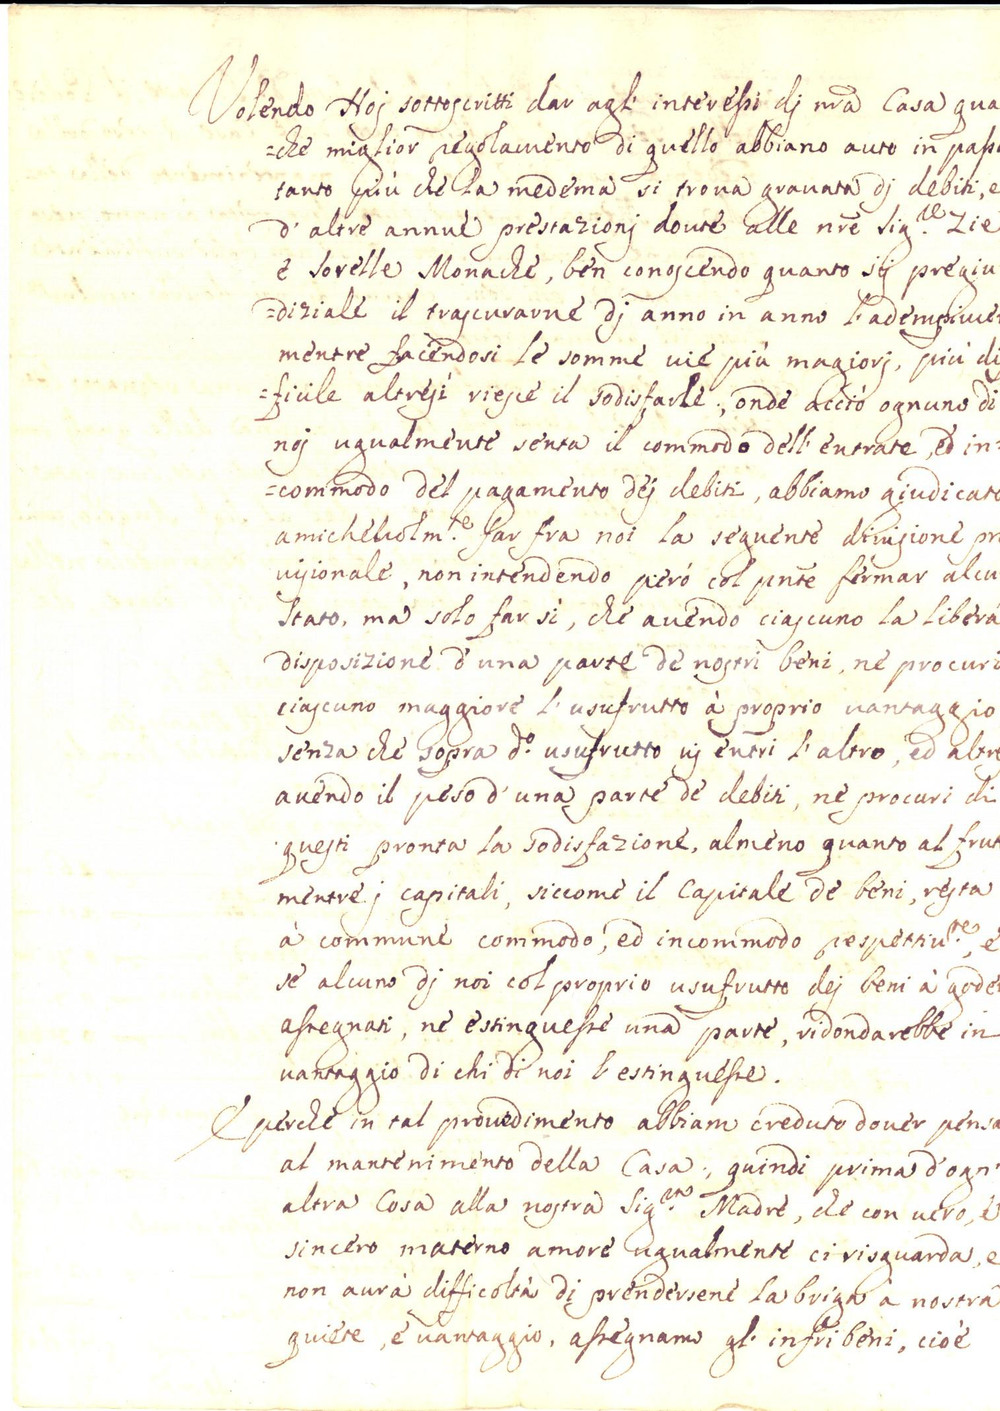 Volendo Noj sottoscritti dar agl' interessi dj nrã Casa qua
=che miglior regolamento di quello abbiano auto in pass
tanto più che la medema si troua grauata dj debiti, e
d' altre annue prestazionj douute alle nrẽ Sig.re Zie
e Sorelle Monache, ben conoscendo quanto sij pregiu
=diziale il trascurarne dj anno in anno l'adempime
mentre facendosi le somme uie più magiorj, più di
=ficile altresì riesce il sodisfarle, onde acciò ognuno di
noj ugualmente senta il commodo dell' entrate, ed in=
=commodo del pagamento dej debiti, abbiamo giudicato
amicheuolm.te far fra noi la seguente diuisione pro
uisionale, non intendendo però col pñte fermar alcu
stato, ma solo far sì, che auendo ciascuno la libera
disposizione d'una parte de nostri beni, ne procuri
ciascuno maggiore l'usufrutto à proprio uantaggio
senza che sopra d.o usufrutto ui entri l'altro, ed altre
auendo il peso d'una parte de debiti, ne procuri di
questi pronta la sodisfazione, almeno quanto al frut
mentre j capitali, siccome il Capitale de beni, resta
à commune commodo, ed incommodo respettiu.te, e
se alcuno dj noi col proprio usufrutto dej beni à goder
assegnati, ne estinguesse una parte, ridondarebbe in
uantaggio di chi di noi l'estinguesse.
E perche in tal prouedimento abbiam creduto douer pensa
al mantenimento della Casa, quindi prima d'ogn'
altra Cosa alla nostra Sig.ra Madre, che con uero, e
sincero materno amore ugualmente ci risguarda, e
non aurà difficoltà di prendersene la briga à nostra
quiete, e uantaggio, assegnamo gl' infri beni, cioè